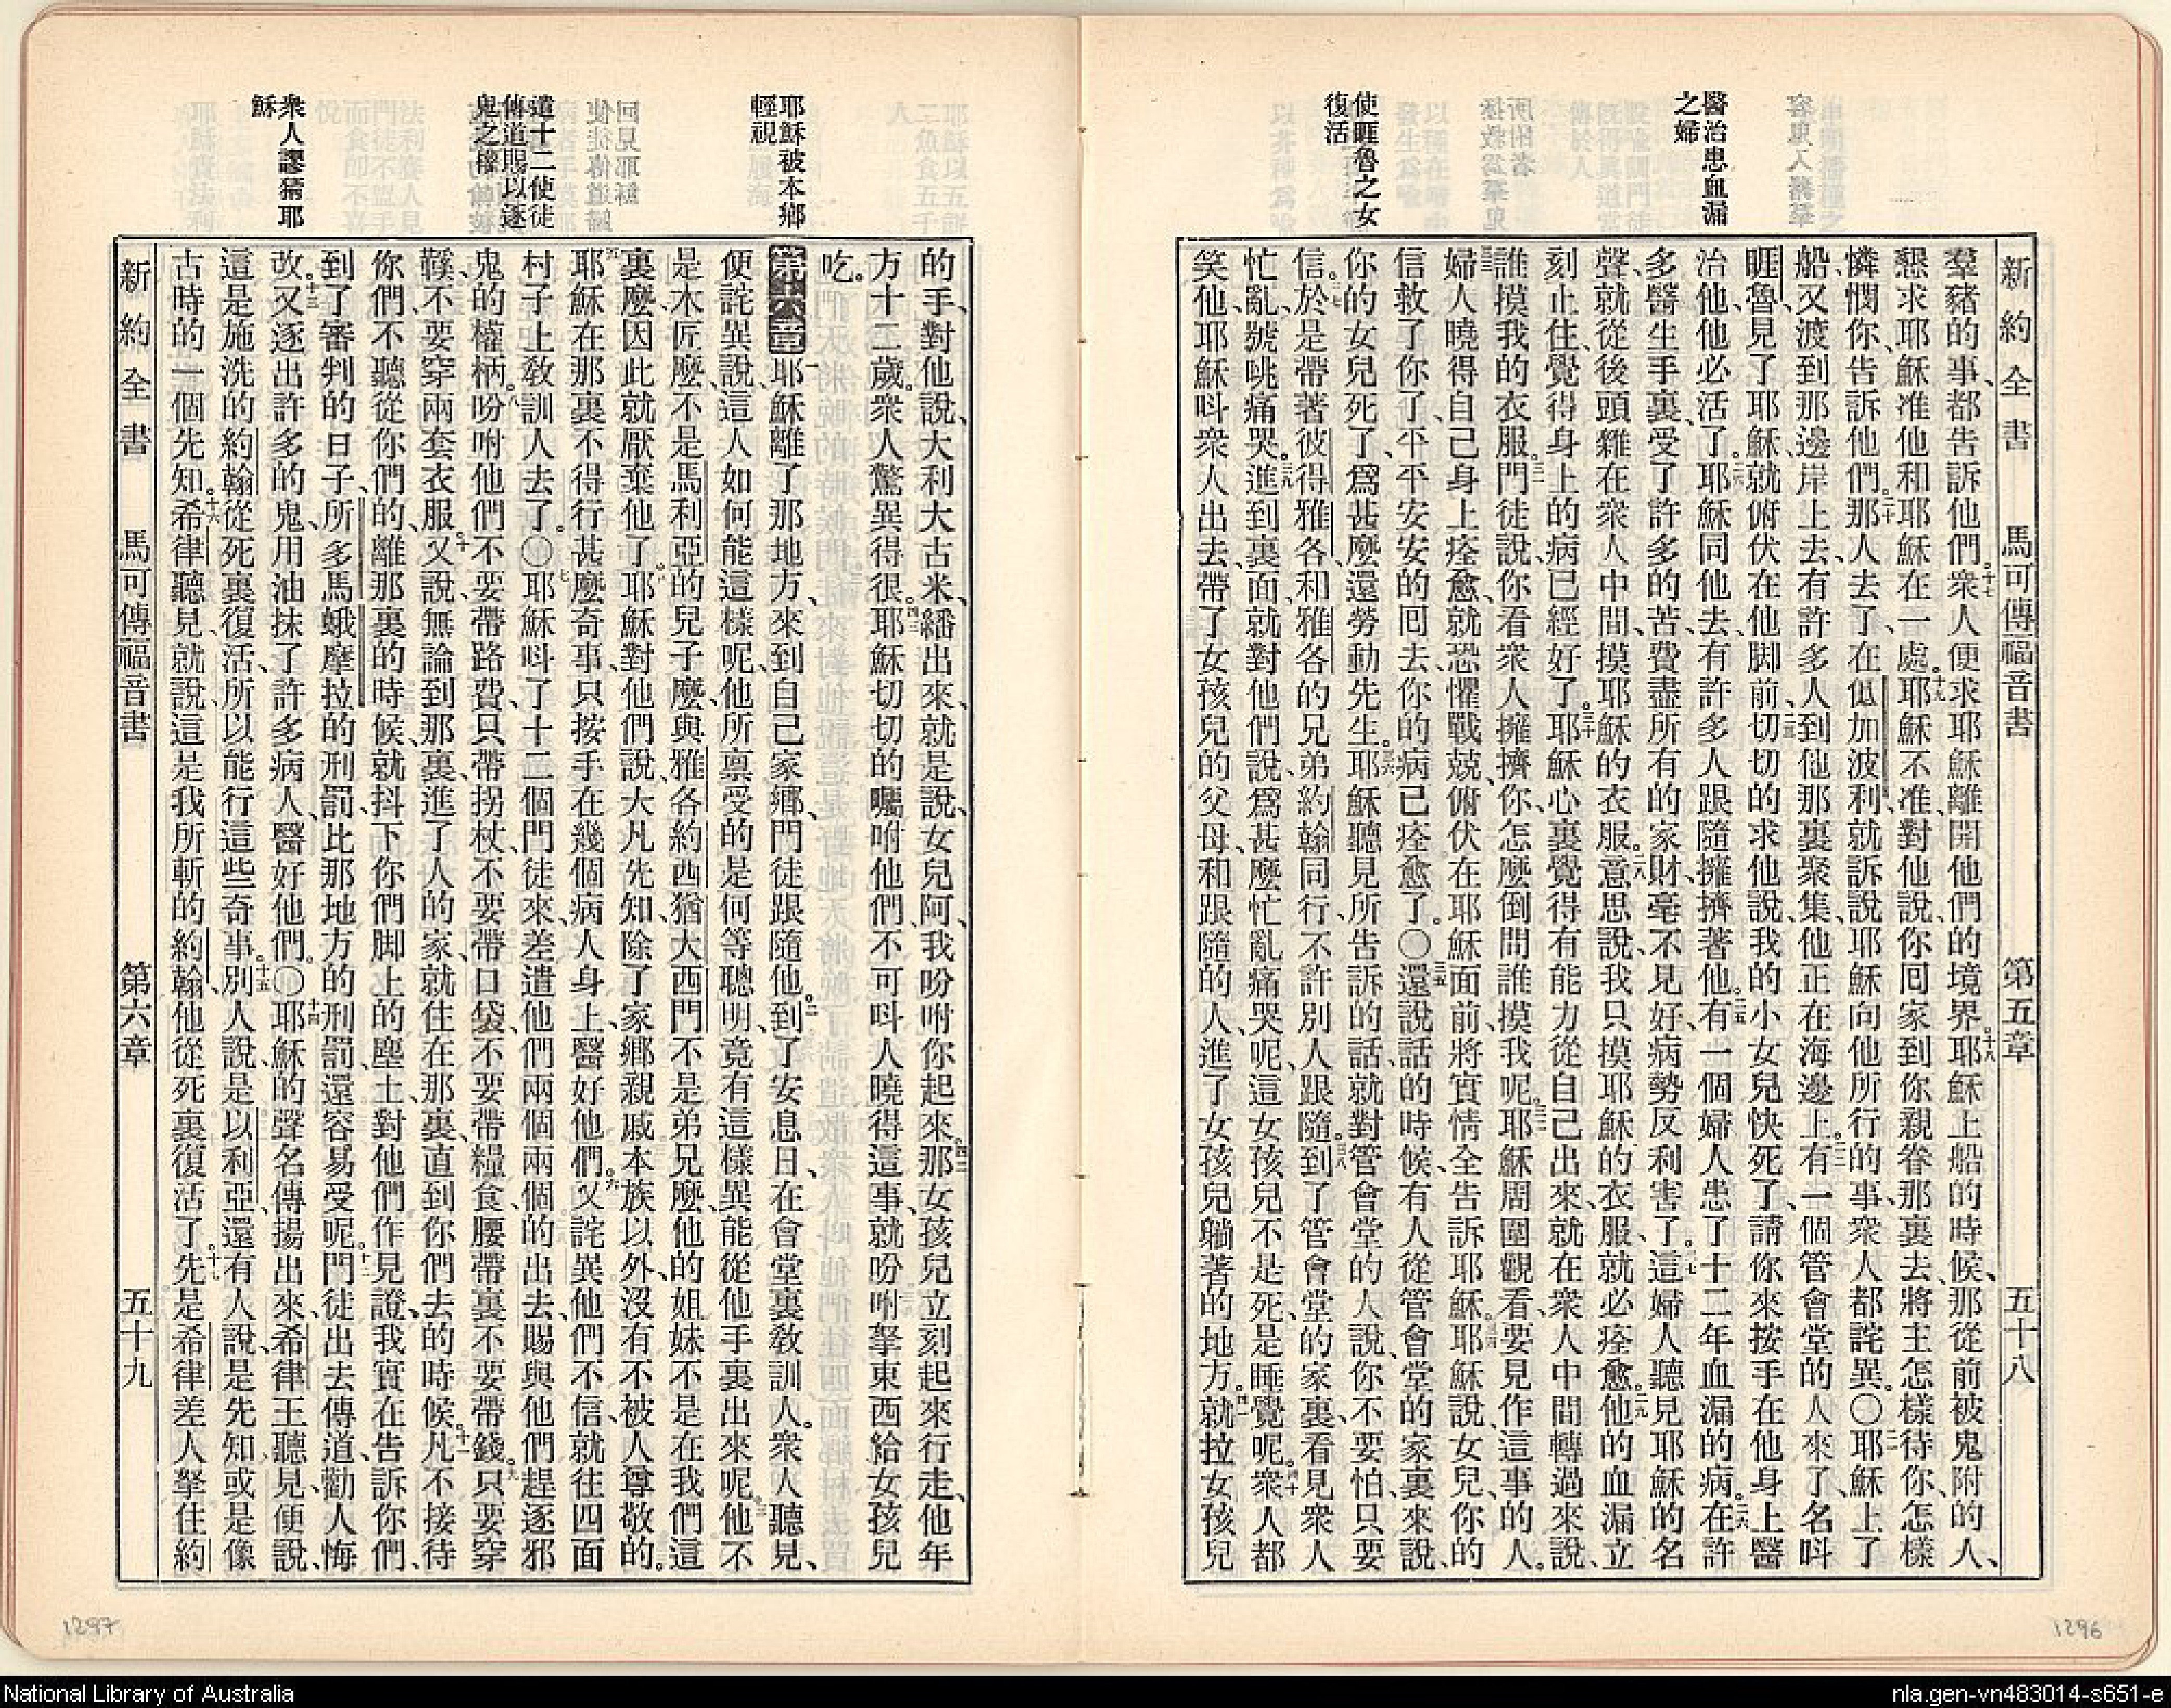 新約全書 馬可傳福音書 第五章 五十八
醫治患血漏
之婦
使睚魯之女
復活
羣豬的事、都告訴他們。十七衆人便求耶穌離開他們的境界。十八耶穌上船的時候、那從前被鬼附的人、
懇求耶穌准他和耶穌在一處。十九耶穌不准、對他說、你回家到你親眷那裏去、將主怎樣待你、怎樣
憐憫你、告訴他們。二十那人去了、在低加波利、就訴說耶穌向他所行的事、衆人都詫異。〇二一耶穌上了
船、又渡到那邊岸上去、有許多人到他那裏聚集、他正在海邊上。二二有一個管會堂的人來了、名呌
睚魯、見了耶穌、就俯伏在他脚前、二三切切的求他說、我的小女兒快死了、請你來按手在他身上醫
治他、他必活了。二四耶穌同他去、有許多人跟隨擁擠著他。二五有一個婦人患了十二年血漏的病。二六在許
多醫生手裏、受了許多的苦、費盡所有的家財、毫不見好、病勢反利害了。二七這婦人聽見耶穌的名
聲、就從後頭雜在衆人中間、摸耶穌的衣服。二八意思說、我只摸耶穌的衣服、就必痊愈。二九他的血漏立
刻止住、覺得身上的病已經好了。三十耶穌心裏覺得有能力從自己出來、就在衆人中間轉過來說、
誰摸我的衣服。三一門徒說、你看衆人擁擠你、怎麼倒問誰摸我呢。三二耶穌周圍觀看、要見作這事的人。
三三婦人曉得自己身上痊愈、就恐懼戰兢、俯伏在耶穌面前、將實情全告訴耶穌。三四耶穌說、女兒、你的
信救了你了、平平安安的回去、你的病已痊愈了。〇三五還說話的時候、有人從管會堂的家裏來說、
你的女兒死了、爲甚麼還勞動先生。三六耶穌聽見所告訴的話、就對管會堂的人說、你不要怕、只要
信。三七於是帶著彼得、雅各、和雅各的兄弟約翰同行、不許別人跟隨。三八到了管會堂的家裏、看見衆人
忙亂、號咷痛哭。三九進到裏面、就對他們說、爲甚麼忙亂痛哭呢、這女孩兒不是死、是睡覺呢。四十衆人都
笑他、耶穌呌衆人出去、帶了女孩兒的父母、和跟隨的人、進了女孩兒躺著的地方。四一就拉女孩兒
1296
耶穌被本鄉
輕視
遣十二使徒
傳道賜以逐
鬼之權
衆人謬猜耶
穌
的手、對他說、大利大古米、繙出來、就是說、女兒阿、我吩咐你起來。四二那女孩兒立刻起來行走、他年
方十二歲。衆人驚異得很。四三耶穌切切的囑咐他們、不可呌人曉得這事、就吩咐拏東西給女孩兒
吃。
第六章 一耶穌離了那地方、來到自己家鄉、門徒跟隨他。二到了安息日、在會堂裏敎訓人。衆人聽見、
便詫異說、這人如何能這樣呢、他所禀受的是何等聰明、竟有這樣異能從他手裏出來呢。三他不
是木匠麼、不是馬利亞的兒子麼、與雅各約西猶大西門不是弟兄麼、他的姐妹不是在我們這
裏麼、因此就厭棄他了。四耶穌對他們說、大凡先知、除了家鄉親戚本族以外、沒有不被人尊敬的。
五耶穌在那裏不得行甚麼奇事、只按手在幾個病人身上、醫好他們。六又詫異他們不信、就往四面
村子上敎訓人去了。〇七耶穌呌了十二個門徒來、差遣他們兩個兩個的出去、賜與他們趕逐邪
鬼的權柄。八吩咐他們不要帶路費、只帶拐杖、不要帶口袋、不要帶糧食、腰帶裏不要帶錢。九只要穿
鞵、不要穿兩套衣服。十又說、無論到那裏、進了人的家、就住在那裏、直到你們去的時候。十一凡不接待
你們、不聽從你們的、離那裏的時候、就抖下你們脚上的塵土、對他們作見證、我實在告訴你們、
到了審判的日子、所多馬蛾摩拉的刑罰、比那地方的刑罰、還容易受呢。十二門徒出去傳道、勸人悔
改。十三又逐出許多的鬼、用油抹了許多病人、醫好他們。〇十四耶穌的聲名傳揚出來、希律王聽見、便說、
這是施洗的約翰從死裏復活、所以能行這些奇事。十五別人說、是以利亞、還有人說、是先知、或是像
古時的一個先知。十六希律聽見、就說、這是我所斬的約翰、他從死裏復活了。十七先是希律差人拏住約
新約全書 馬可傳福音書 第六章 五十九
1297
National Library of Australia
nla.gen-vn483014-s651-e